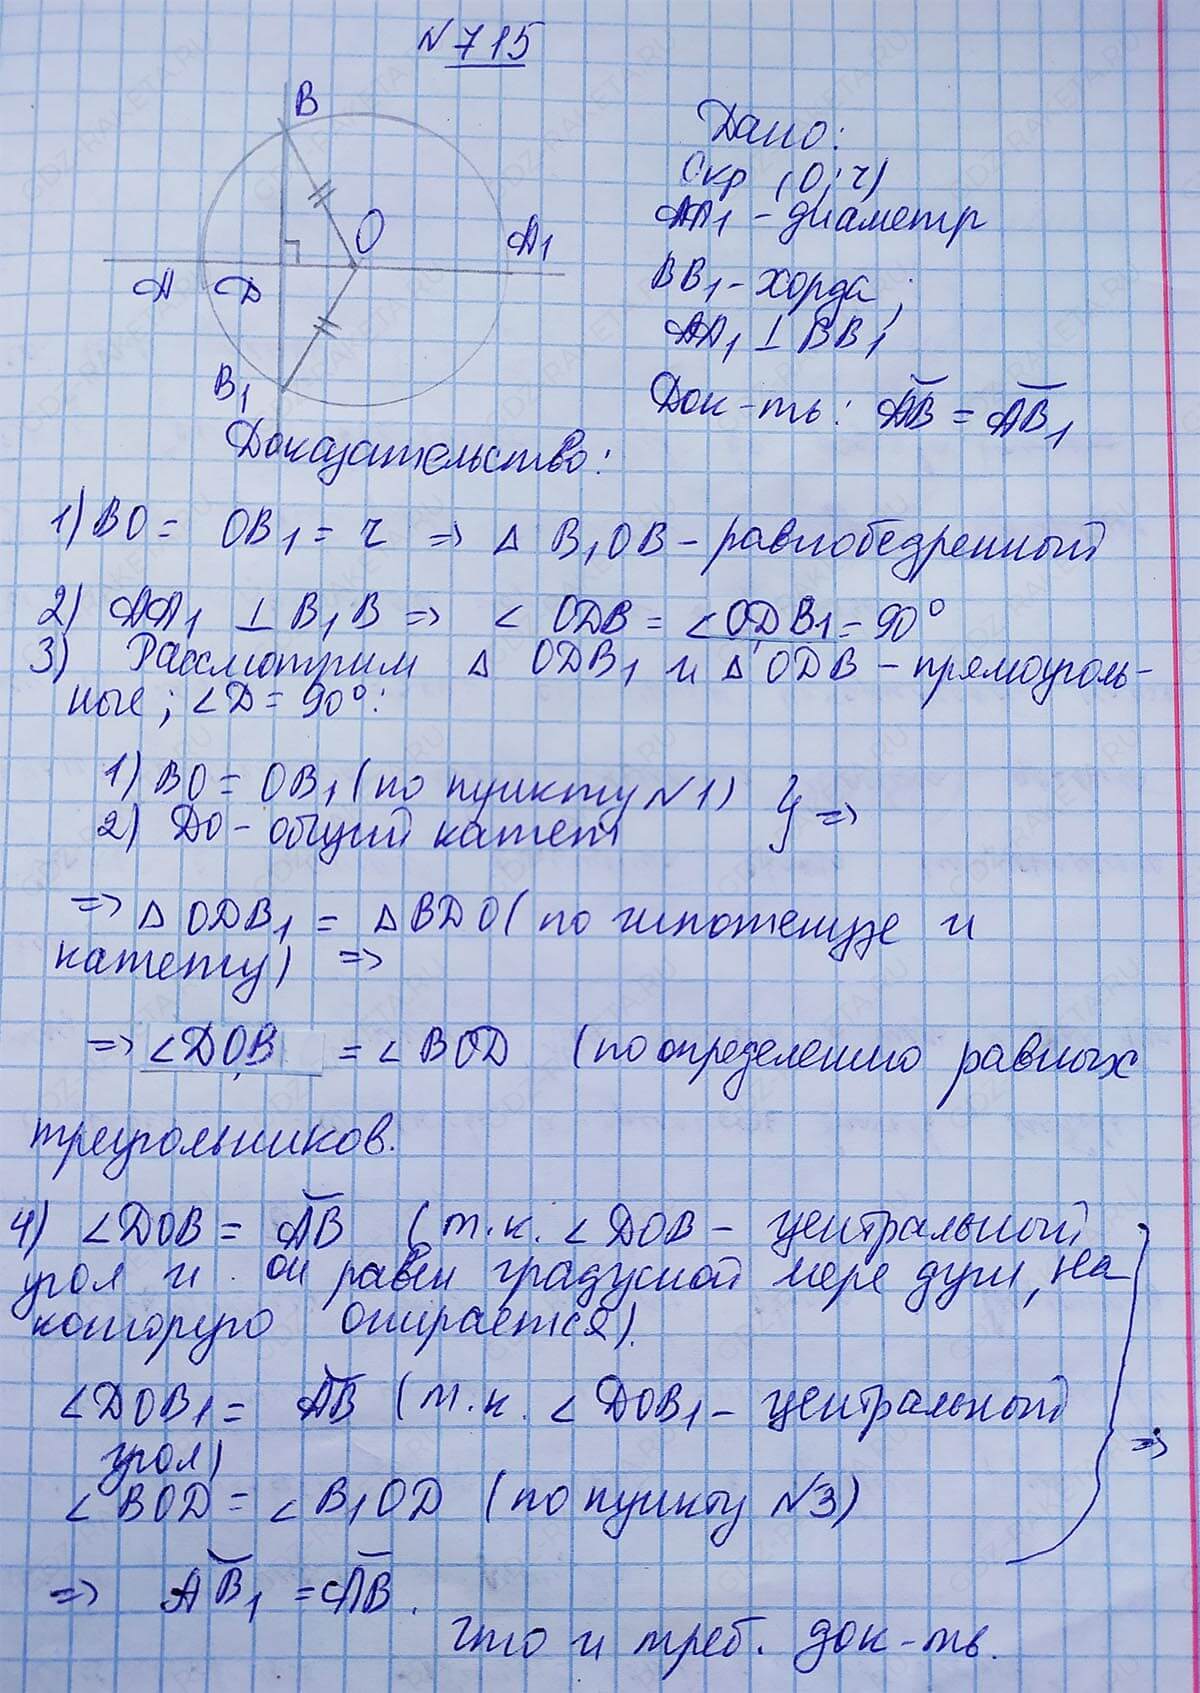 N715
B
O
A1
A
D
B1
Дано:
Окр (O; r)
AA1 - диаметр
BB1 - хорда;
AA1 ⊥ BB1
Док-ть: ᴗAB = ᴗAB1
Доказательство:
1) BO = OB1 = r => △ B1OB - равнобедренный
2) AA1 ⊥ B1B => ∠ ODB = ∠ODB1 = 90°
3) Рассмотрим △ ODB1 и △ ODB - прямоуголь-
ные; ∠D = 90°:
1) BO = OB1 (по пункту N1) } =>
2) DO - общий катет
=> △ ODB1 = △ BDO (по гипотенузе и
катету) =>
=> ∠DOB1 = ∠BOD (по определению равных
треугольников.
4) ∠DOB = ᴗAB (т.к. ∠DOB - центральный
угол и он равен градусной мере дуги, на
которую опирается).
∠DOB1 = ᴗAB (т.к. ∠DOB1 - центральный =>
угол)
∠ BOD = ∠ B1OD (по пункту N3)
=> ᴗAB1 = ᴗAB.
Что и треб. док-ть.